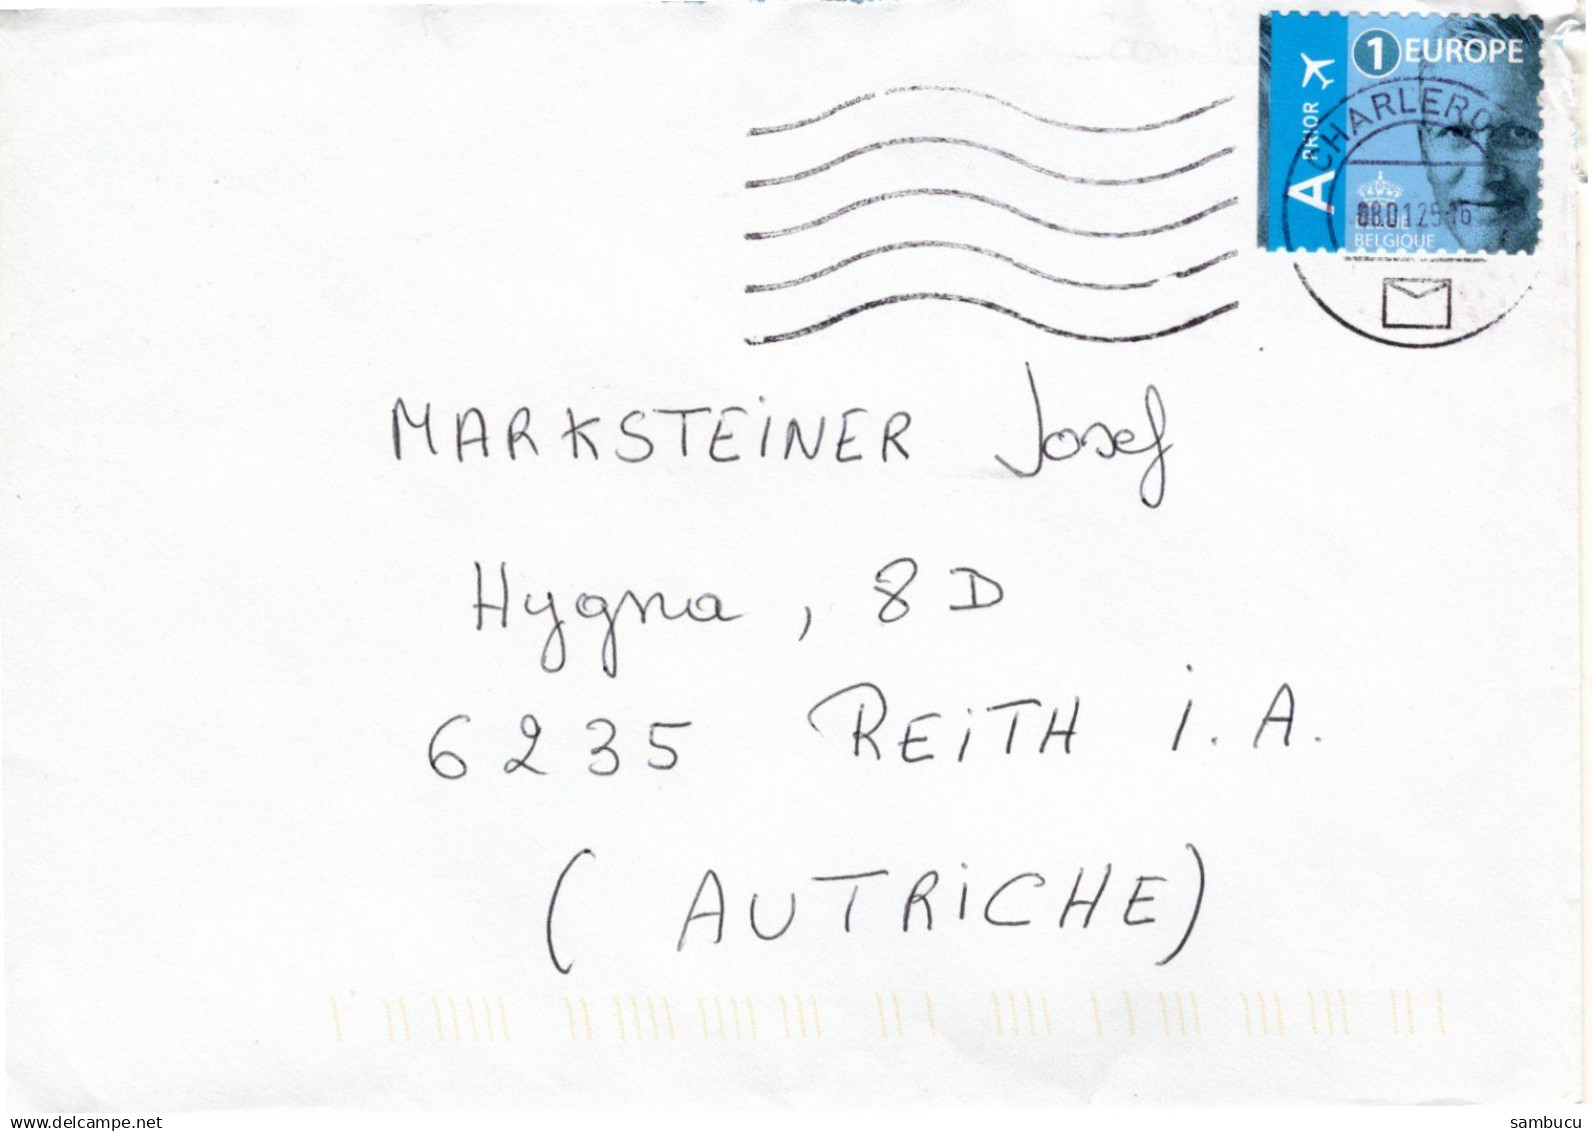 1 EUROPE
A PRIOR
CHARLERO
BELGIQUE
MARKSTEINER Josef
Hygna, 8D
6235 REITH i.A.
(AUTRICHE)
www.delcampe.net
sambucu